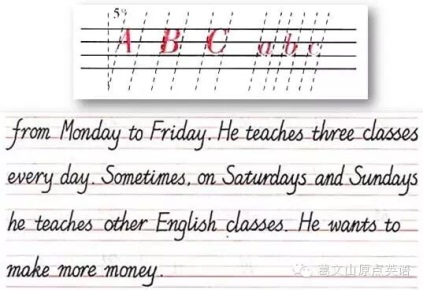 5°
A B C a b c
from Monday to Friday. He teaches three classes
every day. Sometimes, on Saturdays and Sundays
he teaches other English classes. He wants to
make more money.